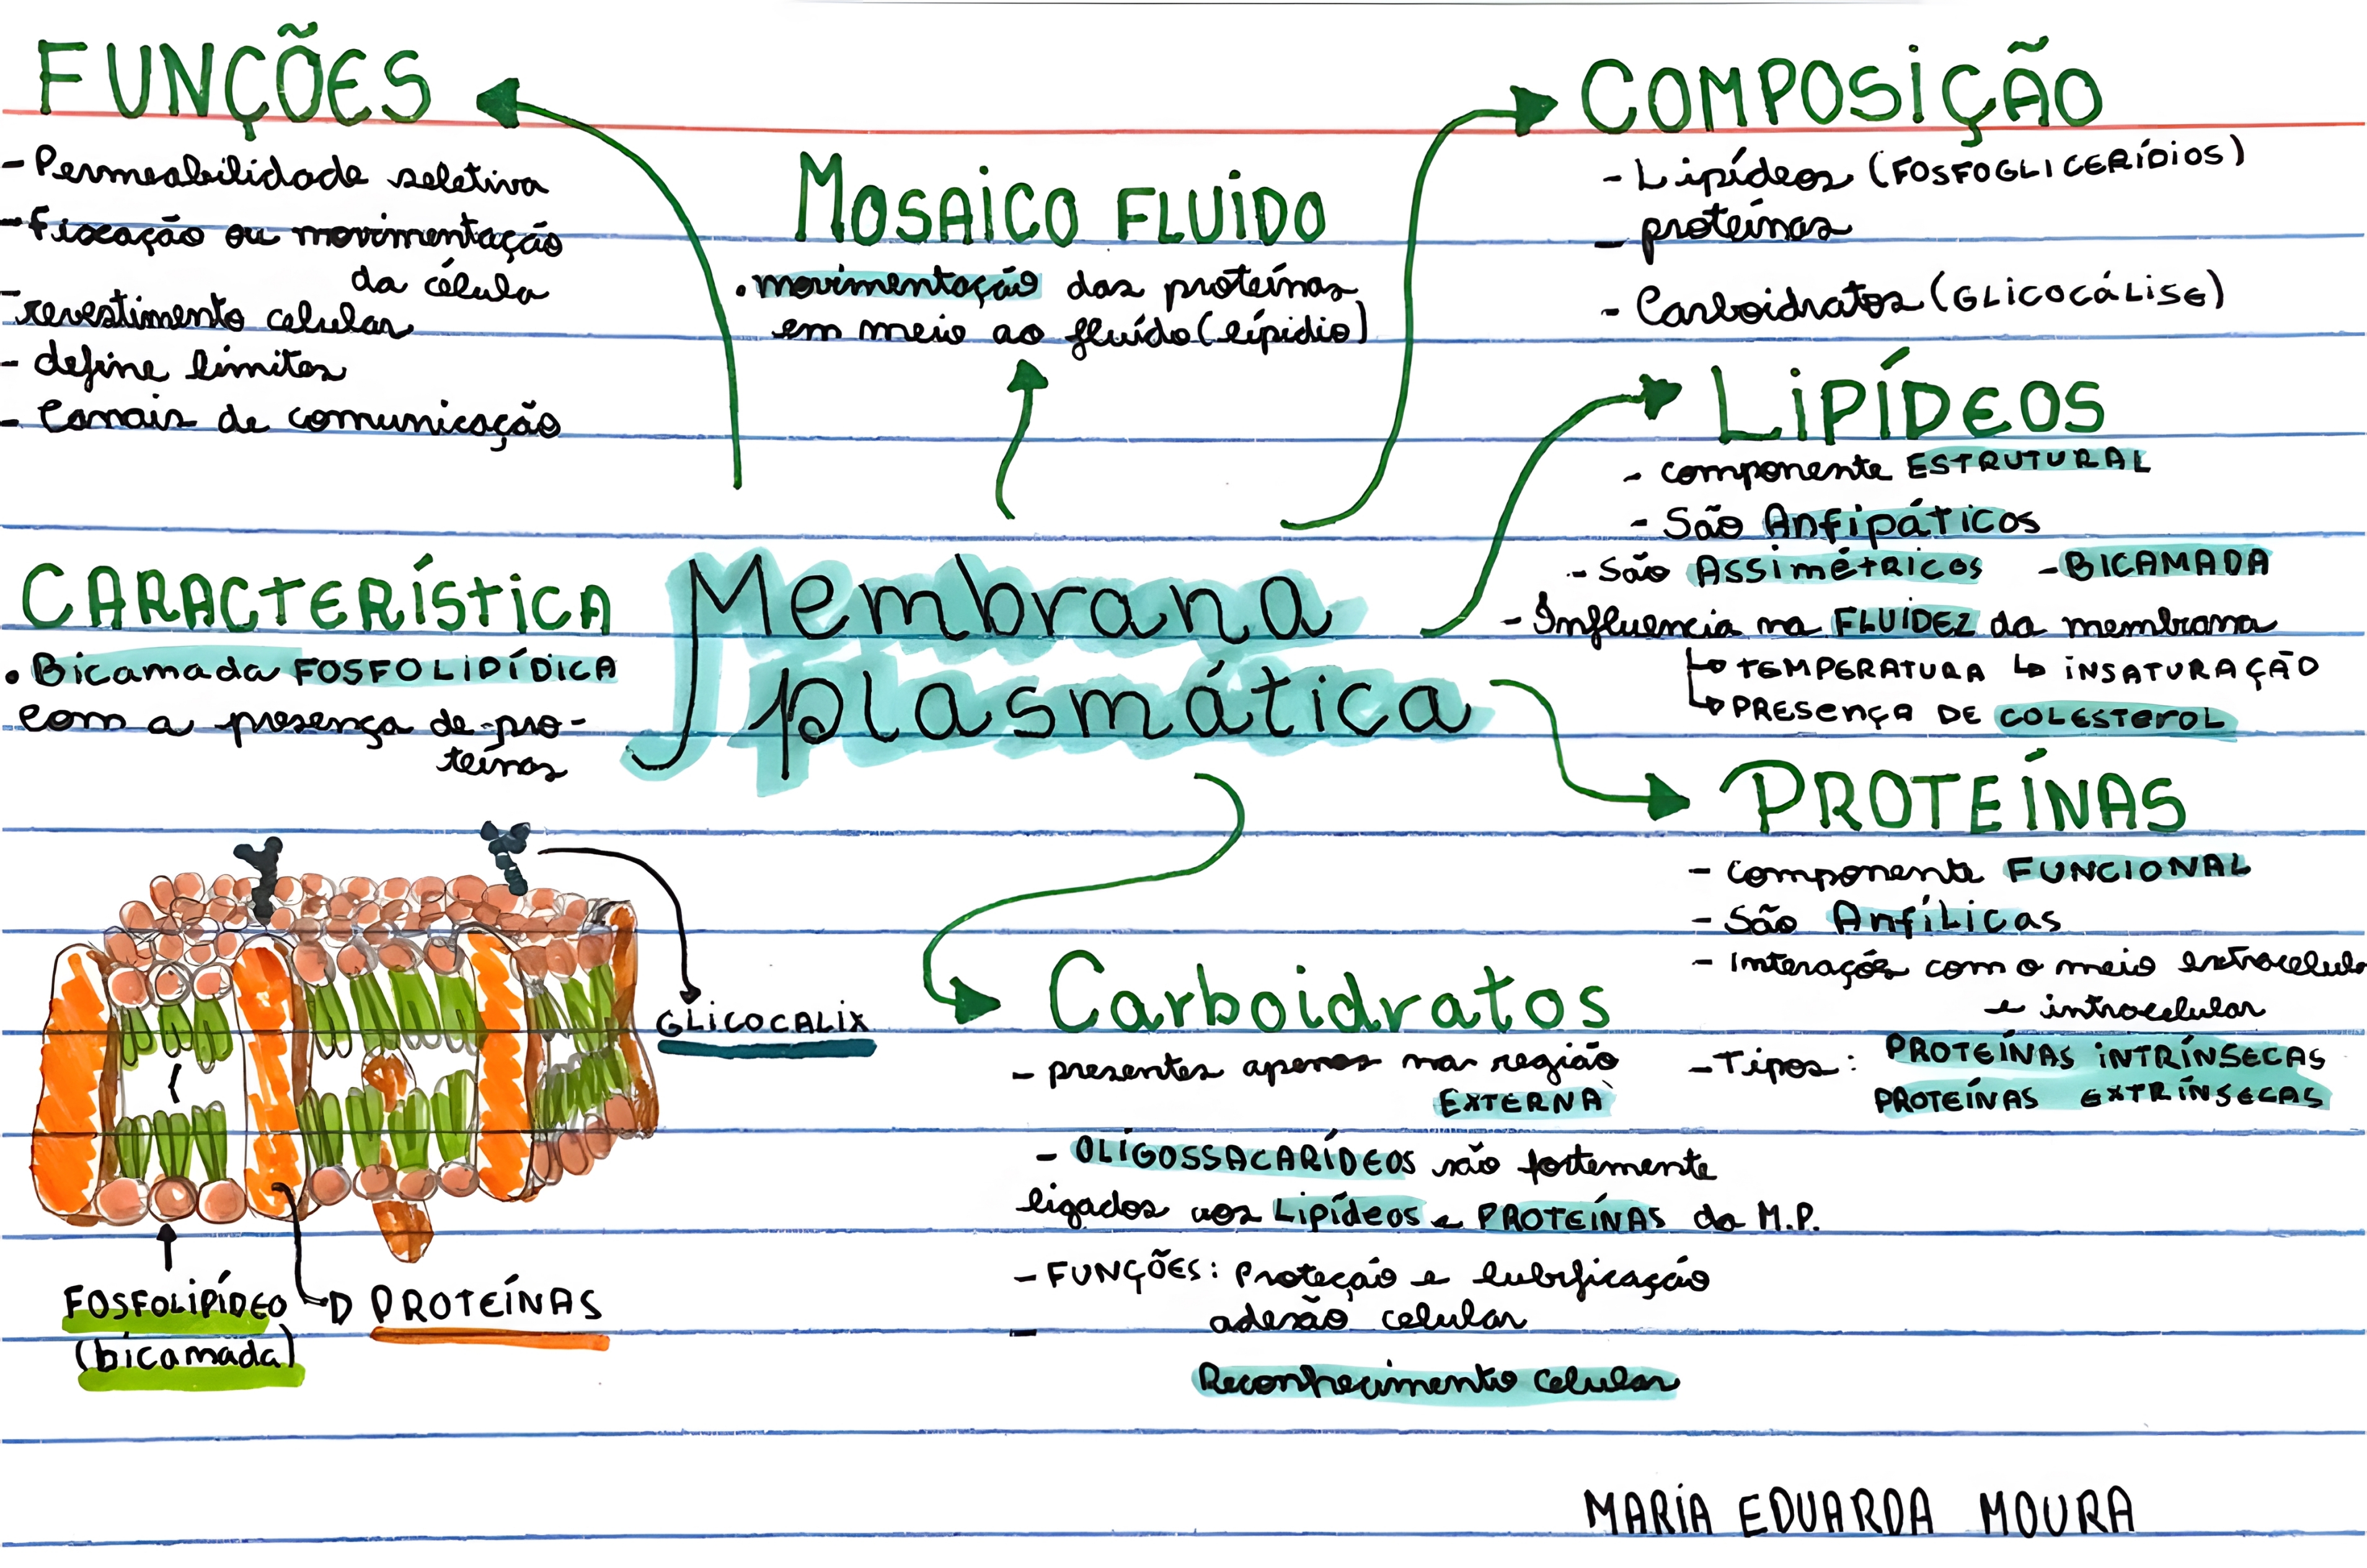 FUNÇÕES
- Permeabilidade seletiva
- fixação ou movimentação
da célula
- revestimento celular
- define limites
- Canais de comunicação
MOSAICO FLUIDO
• movimentação das proteínas
em meio ao fluído (lípidio)
COMPOSIÇÃO
- Lipídeos (FOSFOGLICERÍDIOS)
- proteínas
- Carboidratos (GLICOCÁLISE)
LIPÍDEOS
- componente ESTRUTURAL
- São Anfipáticos
- São ASSimétRicos - BICAMADA
- Influencia na FLUIDEZ da membrana
↳ TEMPERATURA ↳ INSATURAÇÃO
↳ PRESENÇA DE COLESTEROL
CARACTERÍSTICA
• Bicamada FOSFOLIPÍDICA
com a presença de pro-
teínas
Membrana
plasmática
PROTEÍNAS
- componente FUNCIONAL
- São Anfílicas
- Interação com o meio extracelula
e intracelular
- Tipos: PROTEÍNAS INTRÍNSECAS
PROTEÍNAS EXTRÍNSECAS
Carboidratos
- presentes apenas na região
EXTERNA
- OLIGOSSACARÍDEOS são fortemente
ligados aos Lipídeos e PROTEÍNAS da M.P.
- FUNÇÕES: Proteção e lubrificação
- adesão celular
Reconhecimento celular
GLICOCALIX
FOSFOLIPÍDEO
(bicamada)
PROTEÍNAS
MARIA EDUARDA MOURA